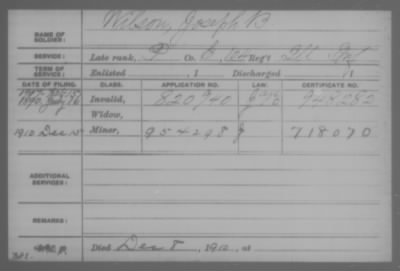 Wilson, Joseph B
NAME OF SOLDIER:
SERVICE: Late rank, P Co. E, 164 Reg't Ill Inf
TERM OF SERVICE: Enlisted , 1 Discharged , 1
DATE OF FILING. CLASS. APPLICATION NO. LAW. CERTIFICATE NO.
1890 July 26 Invalid, 820940 948252
Widow,
1910 Dec 15 Minor, 954298 J 718070
ADDITIONAL SERVICES:
REMARKS:
Died Dec 8, 1910, at